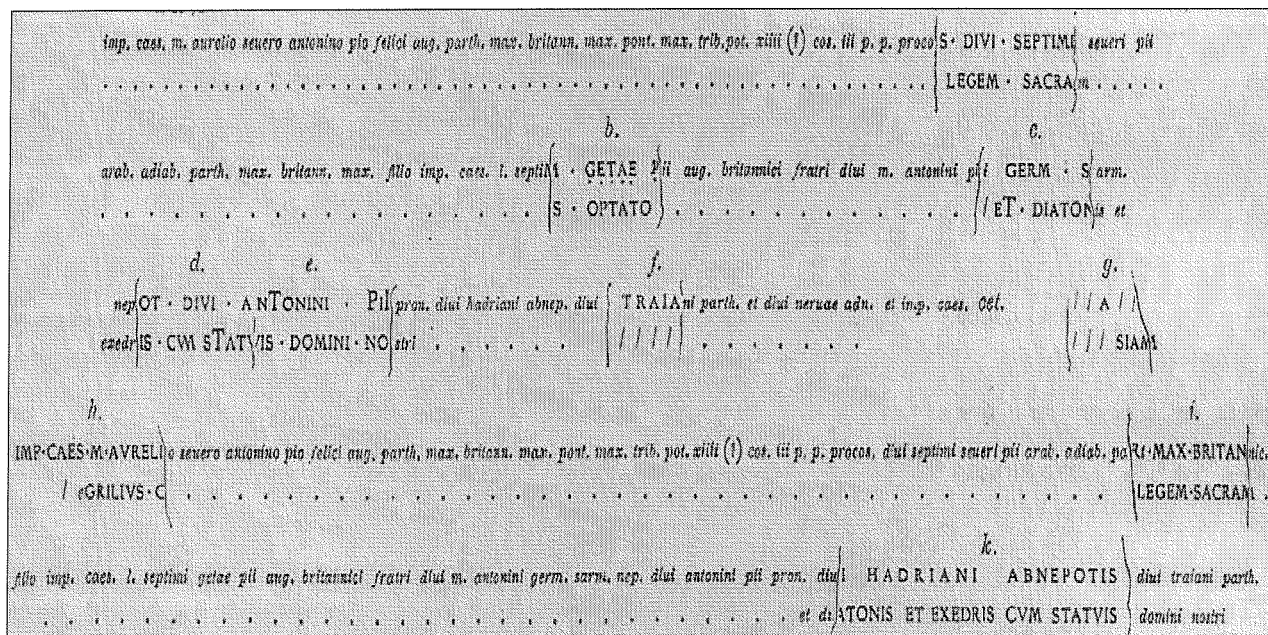 imp. caes. m. aurelio seuero antonino pio felici aug. parth. max. britann. max. pont. max. trib. pot. xiiii (?) cos. iii p. p. procoS · DIVI · SEPTIMI seueri pii
. . . . . . . . . . . . . . . . . . . . LEGEM · SACRAm . . . . .
b. c.
arab. adiab. parth. max. britann. max. filio imp. caes. l. septiMI · GETAE PIi aug. britannici fratri diui m. antonini piI GERM · Sarm.
. . . . . . . . . . . . . . . . S · OPTATO . . . . . . . . . . . . / ET · DIATONis et
d. e. f. g.
nepOT · DIVI · ANTONINI · PII pron. diui hadriani abnep. diui TRAIAni parth. et diui neruae adn. et imp. caes. cet. / / A / /
exedrIS · CVM STATVIS · DOMINI · NOstri . . . . . . / / / / / . . . . . . . / / / SIAM
h. i.
IMP·CAES·M·AVRELIo seuero antonino pio felici aug. parth. max. britann. max. pont. max. trib. pot. xiiii (?) cos. iii p. p. procos, diui septimi seueri pii arab. adiab. paRt·MAX·BRITANnic.
/ eGRILIVS·C . . . . . . . . . . . . . . . . . . . . LEGEM·SACRAM .
k.
filio imp. caes. l. septimi getae pii aug. britannici fratri diui m. antonini germ. sarm. nep. diui antonini pii pron. diuI HADRIANI ABNEPOTIS diui traiani parth.
. . . . . . . . . . . . . . . . . . . . et diATONIS ET EXEDRIS CVM STATVIS domini nostri